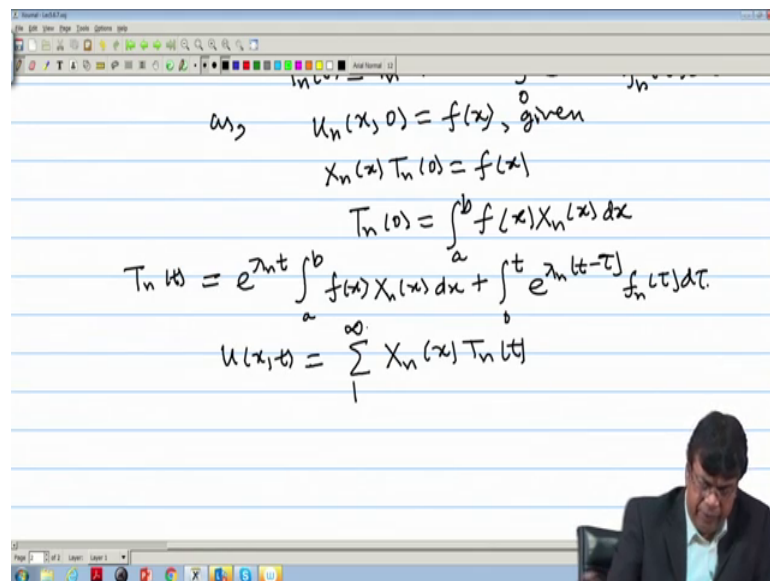 Journal - Lec5,6,7.xoj
File Edit View Page Tools Options Help
Arial Normal 12
as, u_n(x, 0) = f(x), given
X_n(x) T_n(0) = f(x)
T_n(0) = ∫_a^b f(x) X_n(x) dx
T_n(t) = e^{λ_n t} ∫_a^b f(x) X_n(x) dx + ∫_0^t e^{λ_n (t-τ)} f_n(τ) dτ.
u(x,t) = ∑_1^∞ X_n(x) T_n(t)
Page 2 of 2 Layer: Layer 1